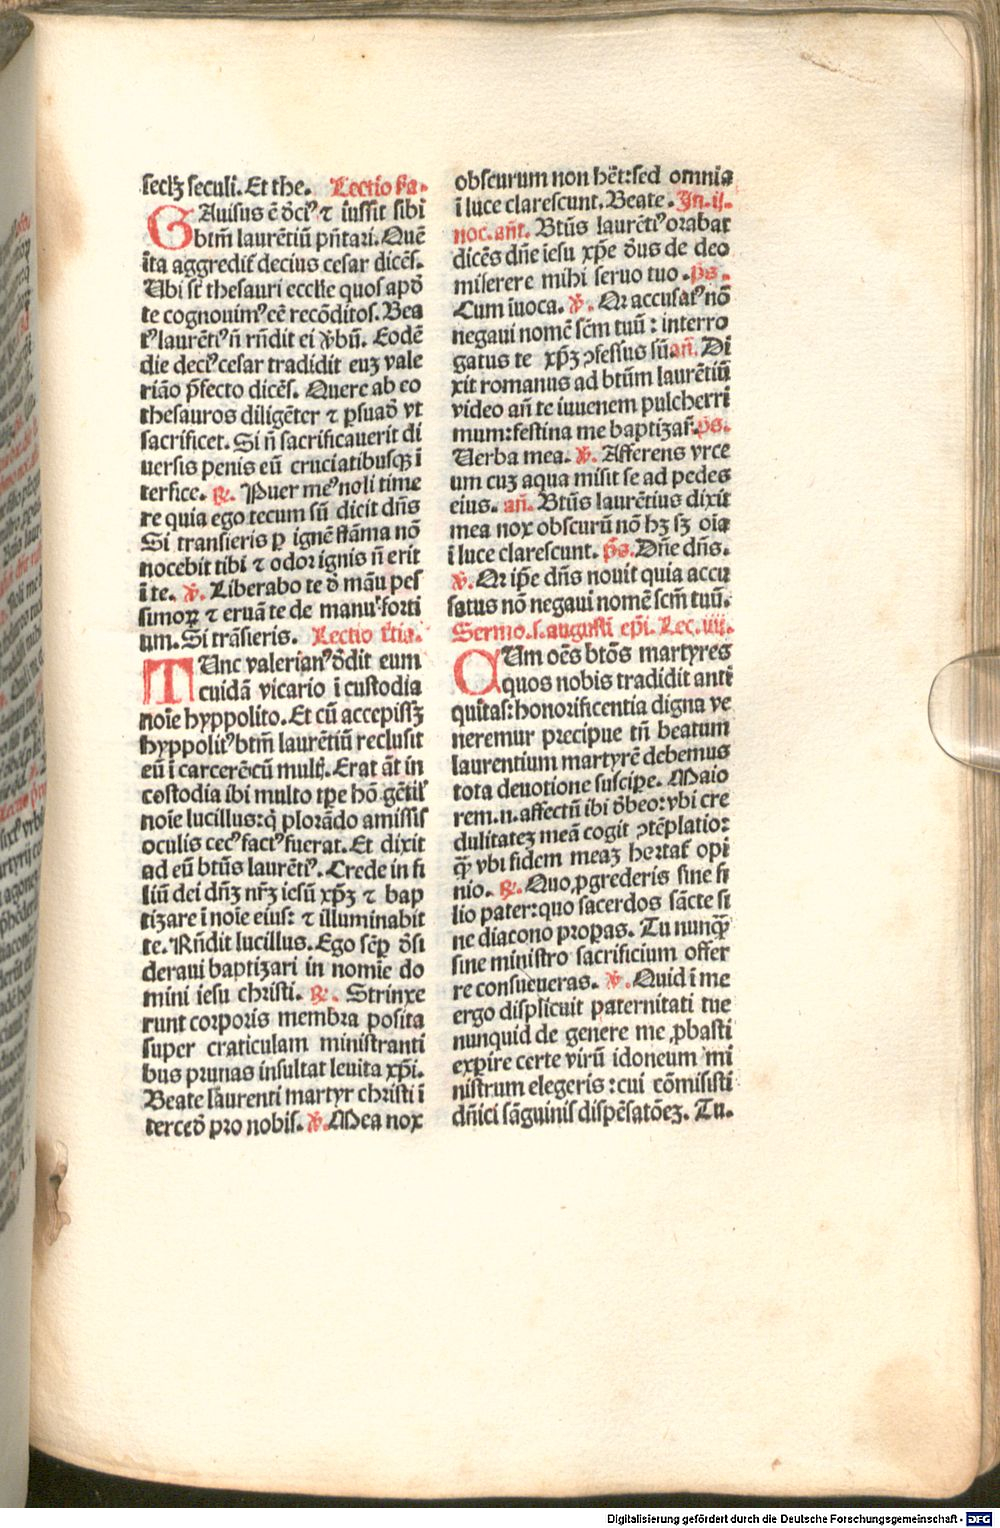 secl'ꝫ seculi. Et the. Lectio s̄a.
GAuisus ē d̄ciꝰ ⁊ iussit sibi
btm̄ laurētiū pn̄tari. Quē
īta aggredit̄ decius cesar dicēs.
Ubi st̄ thesauri ecclie quos apd̄
te cognouimꝰ eē recōditos. Bea
tꝰ laurētiꝰ n̄ rn̄dit ei v̄bū. Eodē
die deciꝰ cesar tradidit euꝫ vale
riāo p̄fecto dicēs. Quere ab eo
thesauros diligēter ⁊ ꝑsuad̄ vt
sacrificet. Si n̄ sacrificauerit di
uersis penis eū cruciatibusqꝫ ī
terfice. ℟. Puer meꝰ noli time
re quia ego tecum sū dicit dn̄s
Si transieris ꝑ ignē flāma nō
nocebit tibi ⁊ odor ignis n̄ erit
ī te. ℣. Liberabo te d̄ māu pes
simoꝝ ⁊ eruā te de manu forti
um. Si trāsieris. Lectio t̄tia.
TUnc valerianꝰ d̄dit eum
cuidā vicario ī custodia
noīe hyppolito. Et cū accepissꝫ
hyppolitꝰ btm̄ laurētiū reclusit
eū ī carcerē cū mult̄. Erat āt in
costodia ibi multo tp̄e hō gētil'
noīe lucillus: q̄ plorādo amissis
oculis cecꝰ factꝰ fuerat. Et dixit
ad eū btūs laurētiꝰ. Crede in fi
liū dei dn̄ꝫ nr̄ꝫ iesū xp̄ꝫ ⁊ bap
tizare ī noīe eius: ⁊ illuminabit
te. Rn̄dit lucillus. Ego sēꝑ d̄si
deraui baptizari in nomīe do
mini iesu christi. ℟. Strinxe
runt corporis membra posita
super craticulam ministranti
bus prunas insultat leuita xp̄i.
Beate laurenti martyr christi ī
terced̄ pro nobis. ℣. Mea nox
obscurum non hēt: sed omnia
ī luce clarescunt. Beate. In .ij.
noc. an̄t. Btūs laurētiꝰ orabat
dicēs dn̄e iesu xp̄e d̄us de deo
miserere mihi seruo tuo. p̄s.
Cum īuoca. ℣. Qr accusatꝰ nō
negaui nomē scm̄ tuū: interro
gatus te xp̄ꝫ ꝯfessus sū. an̄. Di
xit romanus ad btūm laurētiū
video an̄ te iuuenem pulcherri
mum: festina me baptizar̄. p̄s.
Uerba mea. ℣. Afferens vrce
um cuꝫ aqua misit se ad pedes
eius. an̄. Btūs laurētius dixit
mea nox obscurū nō hꝫ sꝫ oīa
ī luce clarescunt. p̄s. Dn̄e dn̄s.
℣. Qr ip̄e dn̄s nouit quia accu
satus nō negaui nomē scm̄ tuū.
Sermo. s. augusti ep̄i. Lec. iiij.
CUm oēs btōs martyres
quos nobis tradidit anti
quitas: honorificentia digna ve
neremur precipue tn̄ beatum
laurentium martyrē debemus
tota deuotione suscipe. Maio
rem. n. affectū ibi d̄beo: vbi cre
dulitateꝫ meā cogit ꝯtēplatio:
q̄ꝫ vbi fidem meaꝫ hertat̄ opi
nio. ℟. Quo ꝓgrederis sine fi
lio pater: quo sacerdos sācte si
ne diacono properas. Tu nunqꝫ
sine ministro sacrificium offer
re consueueras. ℣. Quid ī me
ergo displicuit paternitati tue
nunquid de genere me ꝓbasti
expire certe virū idoneum mi
nistrum elegeris: cui cōmisisti
dn̄ici sāguinis dispēsatōeꝫ. Tu.
Digitalisierung gefördert durch die Deutsche Forschungsgemeinschaft - DFG